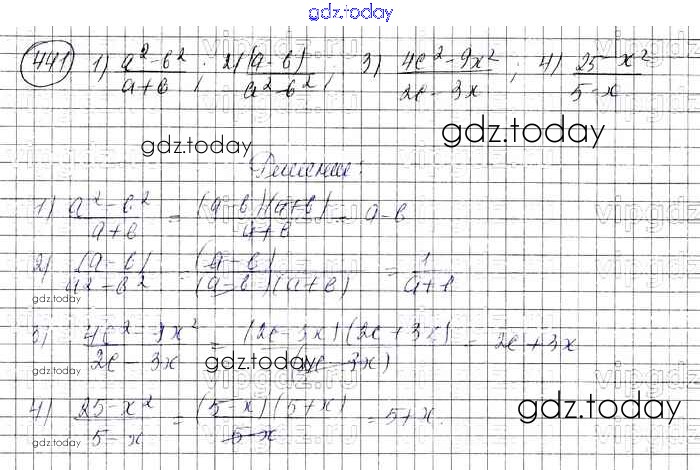 gdz.today
441 1) (a² - b²)/(a + b); 2) (a - b)/(a² - b²); 3) (4c² - 9x²)/(2c - 3x); 4) (25 - x²)/(5 - x)
gdz.today
gdz.today
Решение:
1) (a² - b²)/(a + b) = (a - b)(a + b)/(a + b) = a - b
2) (a - b)/(a² - b²) = (a - b)/((a - b)(a + b)) = 1/(a + b)
gdz.today
3) (4c² - 9x²)/(2c - 3x) = (2c - 3x)(2c + 3x)/(2c - 3x) = 2c + 3x
gdz.today
gdz.today
4) (25 - x²)/(5 - x) = (5 - x)(5 + x)/(5 - x) = 5 + x.
gdz.today
gdz.today